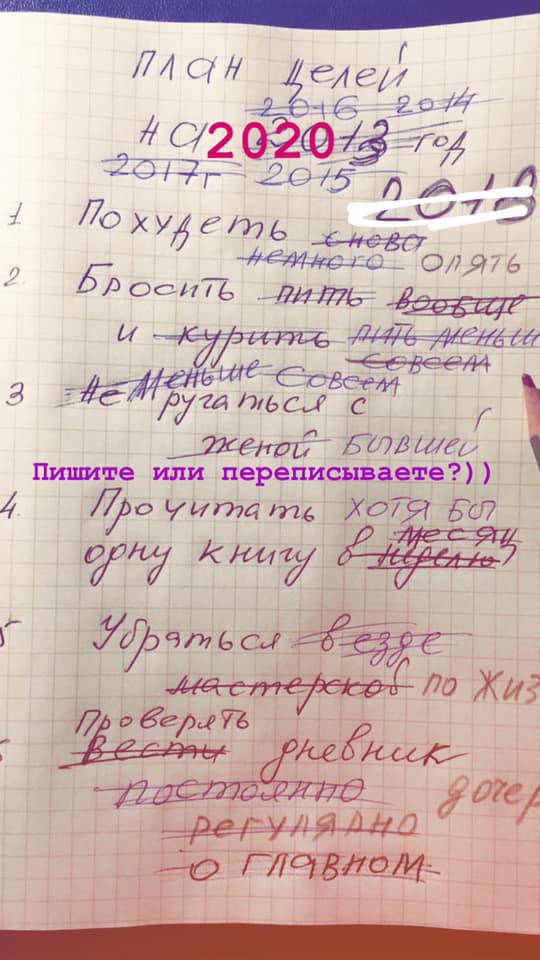 План целей
2016 2014
на 2020 2013 год
2017г 2015
2018
1 Похудеть снова
немного опять
2. Бросить пить вообще
и курить пить меньш
совсем
3 Не меньше совсем
ругаться с
женой бывшей
Пишите или переписываете?))
4. Прочитать хотя бы
месяц
одну книгу в неделю
5 Убраться везде
мастерской по жиз
Проверять
вести дневник
постоянно дочер
регулядно
о главном